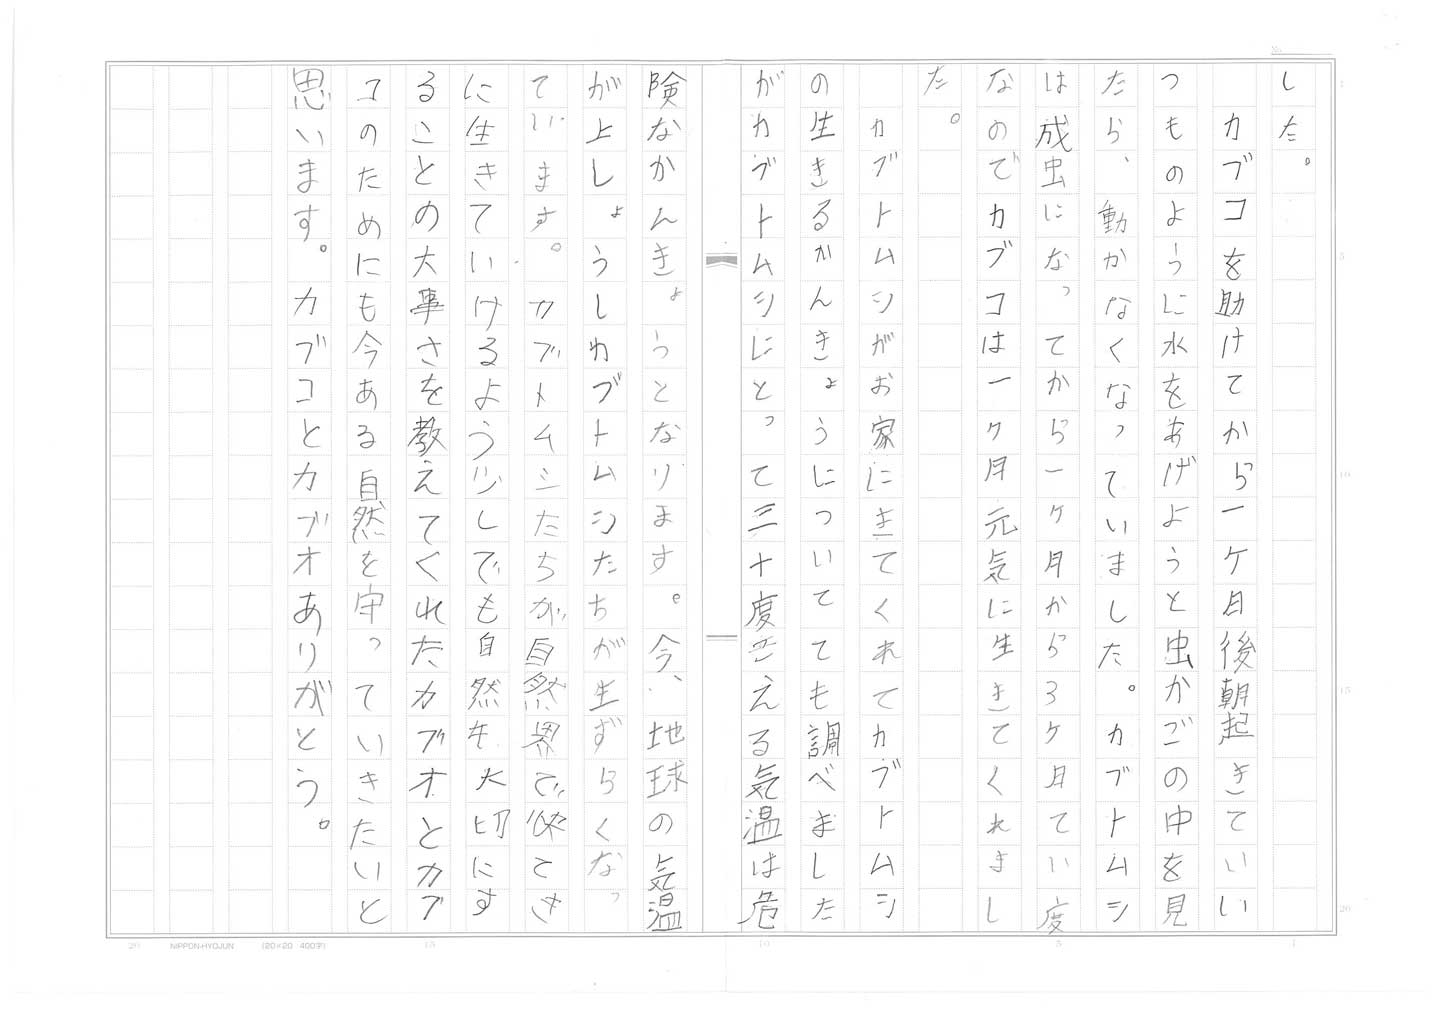 した。
カブコを助けてから一ケ月後朝起きていい
つものように水をあげようと虫かごの中を見
たら、動かなくなっていました。カブトムシ
は成虫になってから一ケ月から3ケ月てい度
なのでカブコは一ケ月元気に生きてくれまし
た。
カブトムシがお家にきてくれてカブトムシ
の生きるかんきょうについても調べました
がカブトムシにとって三十度きえる気温は危
険なかんきょうとなります。今、地球の気温
が上しょうしカブトムシたちが生ずらくなっ
ています。カブトムシたちが自然界で
に生きていけるよう少しでも自然を大切にす
ることの大事さを教えてくれたカブオとカブ
コのためにも今ある自然を守っていきたいと
思います。カブコとカブオありがとう。
No.
1
5
10
15
20
1
5
10
15
20
NIPPON-HYOJUN (20×20 400字)